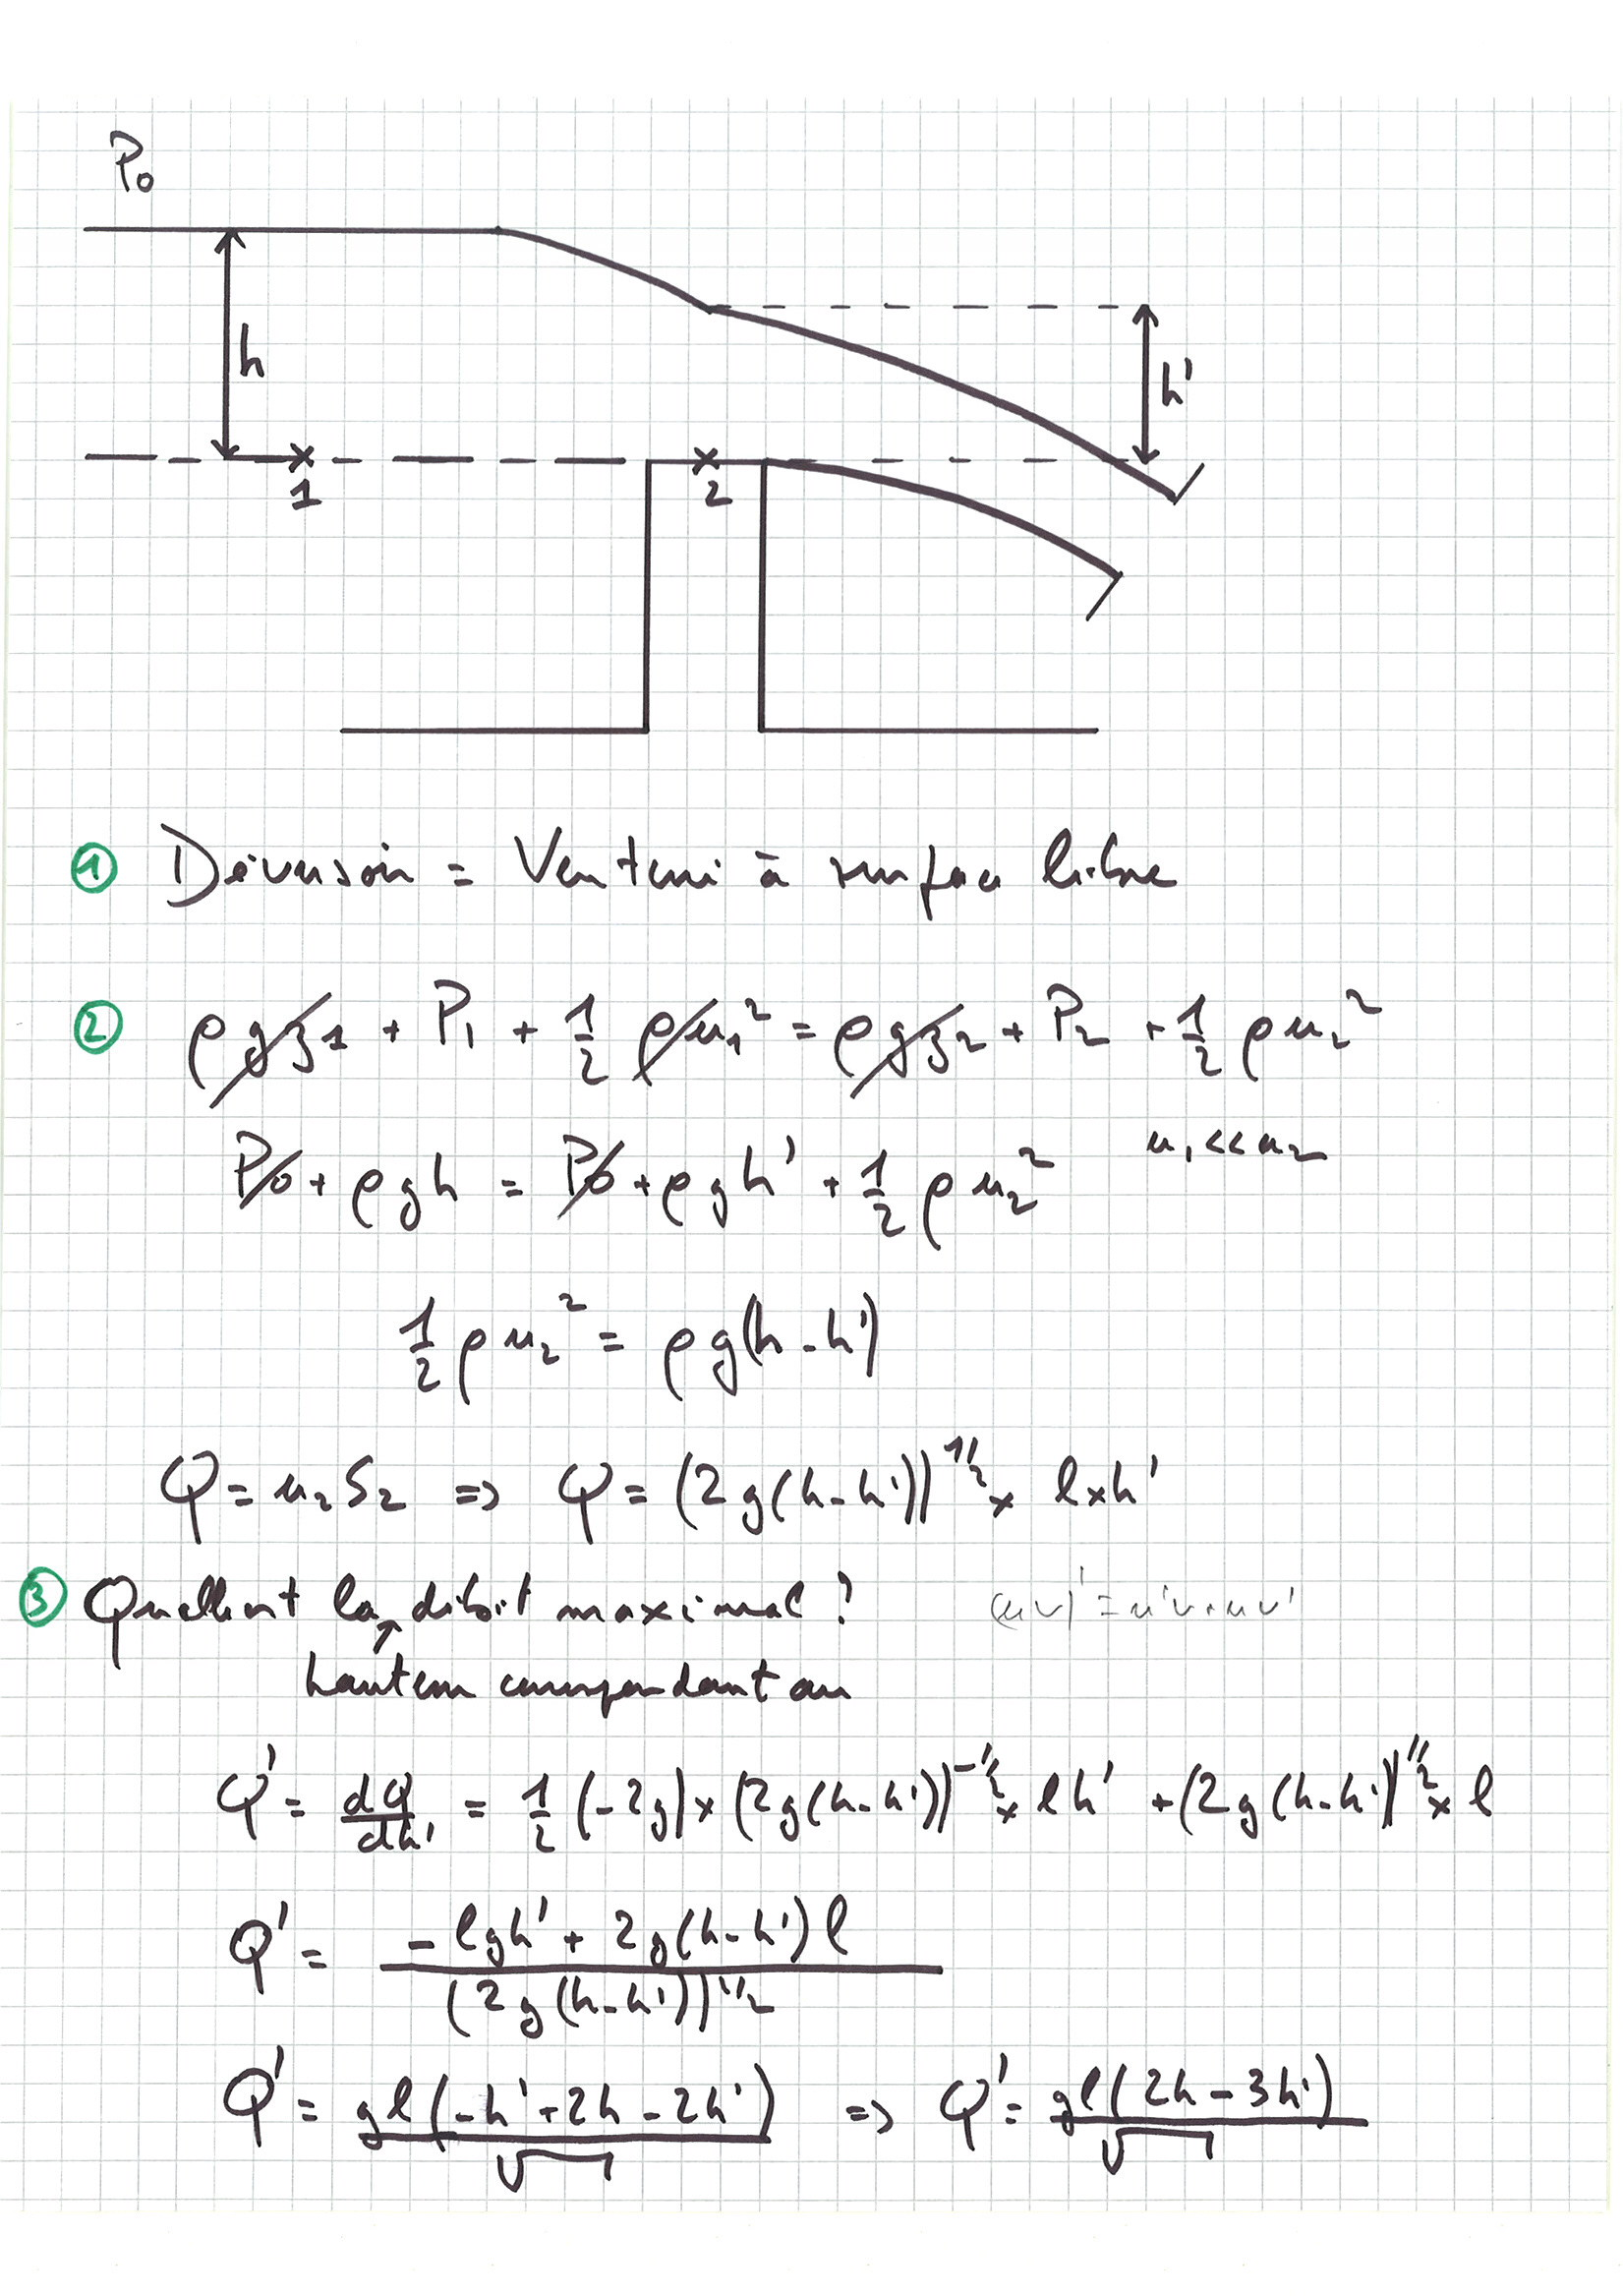 P₀
h
h'
1
2
① Déversoir = Venturi à surface libre
② ρgz₁ + P₁ + 1/2 ρu₁² = ρgz₂ + P₂ + 1/2 ρu₂²
P₀ + ρgh = P₀ + ρgh' + 1/2 ρu₂² u₁<<u₂
1/2 ρu₂² = ρg(h-h')
Q = u₂S₂ => Q = (2g(h-h'))^1/2 x l x h'
③ Quelle est la débit maximal ? (uv)' = u'v+uv'
hauteur correspondant au
Q' = dQ/dh' = 1/2 (-2g) x (2g(h-h'))^-1/2 x lh' + (2g(h-h'))^1/2 x l
Q' = (-lgh' + 2g(h-h')l)/(2g(h-h'))^1/2
Q' = gl(-h'+2h-2h')/√ => Q' = gl(2h-3h')/√